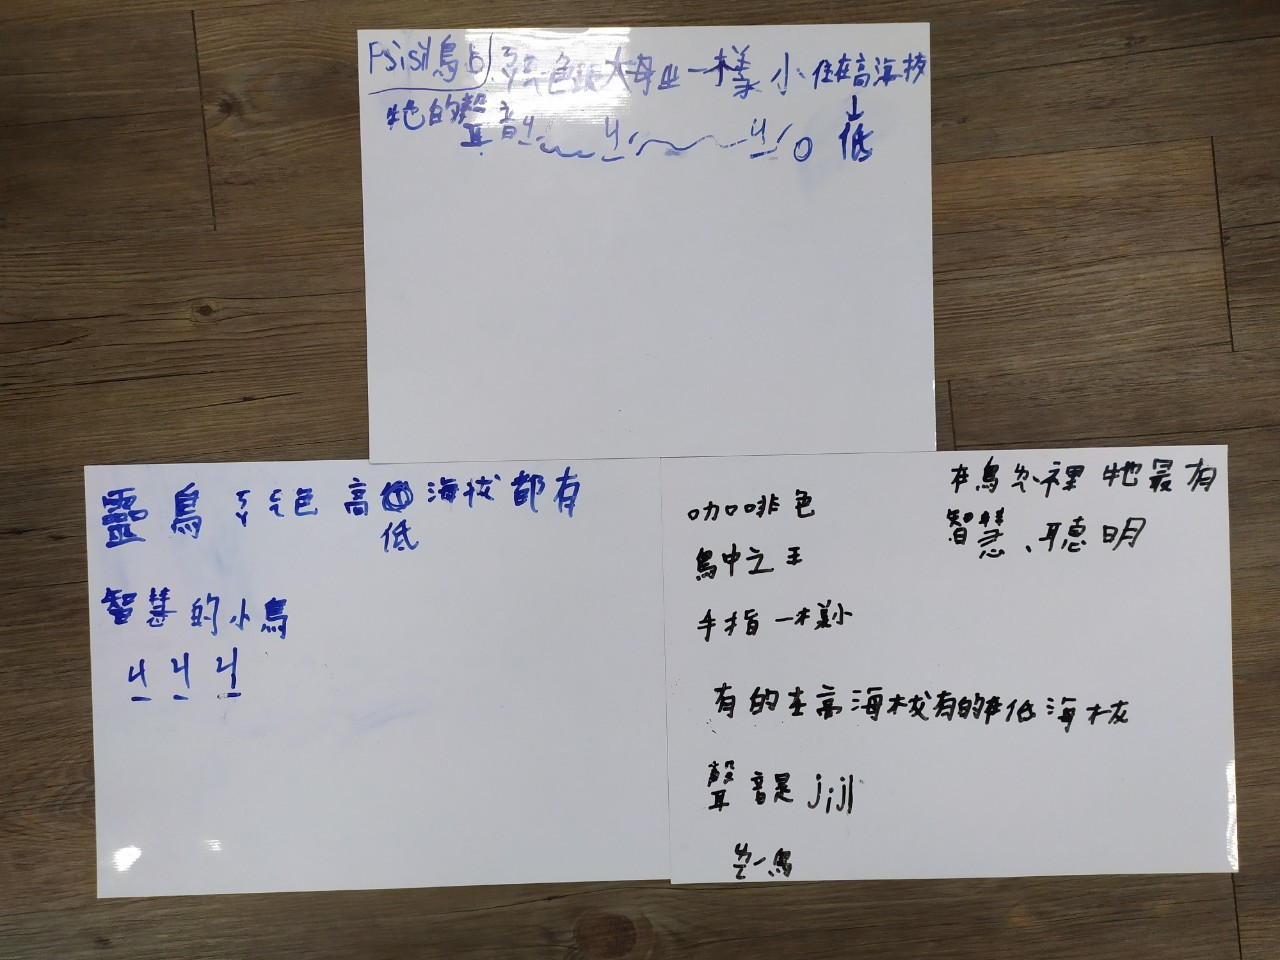 Psisil鳥 ㄎㄚ色跟大母 一樣 小 住在高海拔
↓
低
牠的聲音ㄐ ㄐ ㄐ
靈鳥 ㄎㄚ色 高 海拔都有
低
智慧的小鳥
ㄐ ㄐ ㄐ
在鳥 裡 牠最有
智慧、聰明
咖啡色
鳥中之王
手指一樣小
有的在高海拔有的在低海拔
聲音是jiji
ㄌㄧㄥˊ鳥